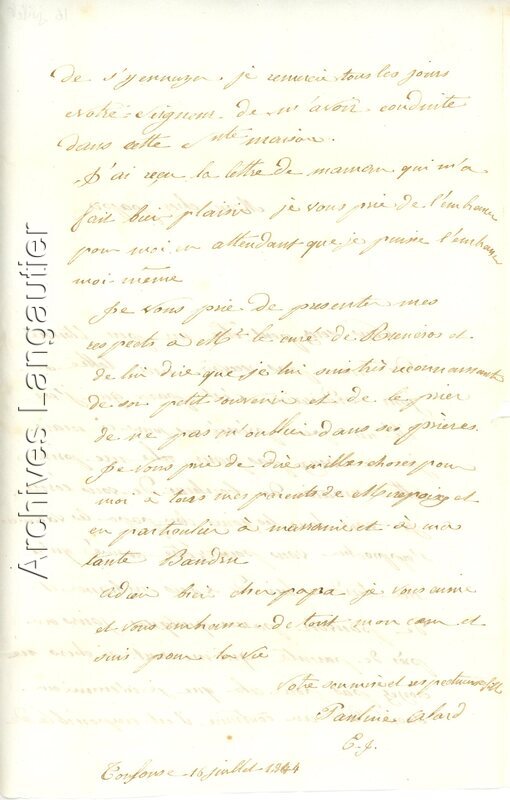 de s'y ennuyer. je remercie tous les jours
notre Seigneur de m'avoir conduite
dans cette Ste maison.
J'ai reçu la lettre de maman qui m'a
fait bien plaisir je vous prie de l'embrasser
pour moi en attendant que je puisse l'embrasser
moi même
Je vous prie de presenter mes
respects à Mr. le curé de et
de lui dire que je lui suis très reconnaissante
de son petit souvenir et de le prier
de ne pas m'oublier dans ses prières.
Je vous prie de dire milles choses pour
moi à tous mes parents de Mirepoix et
en particulier à et à ma
tante
adieu bien cher papa je vous aime
et vous embrasse de tout mon cœur et
suis pour la vie
votre soumise et respectueuse fille
Pauline Alard
E. J.
Toulouse 16 juillet 1844
Archives Langautier